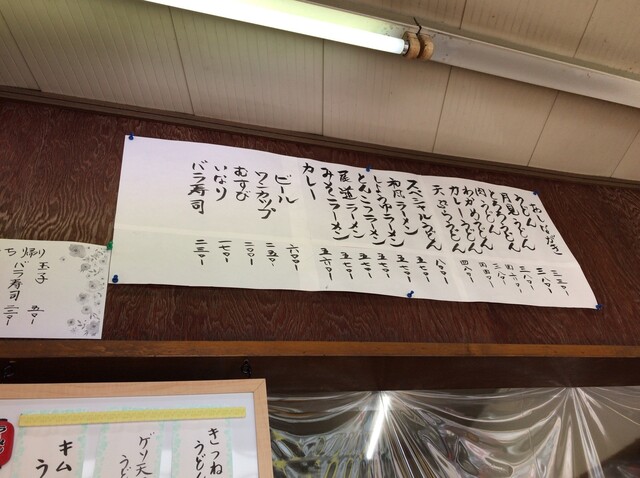 おしながき
うどん 三三〇-
月見うどん 三八〇-
とろろうどん 三八〇-
肉うどん
わかめうどん
カレーうどん
天ぷらうどん 四八〇-
スペシャルうどん 八〇〇-
和風ラーメン
しょうゆラーメン 五七〇-
とんこつラーメン 五七〇-
尾道ラーメン 五七〇-
みそラーメン
カレー 五六〇-
ビール 六〇〇-
ワンカップ 二五〇-
むすび 二〇〇-
いなり 一七〇-
バラ寿司 二三〇-
玉子
バラ寿司
きつねうどん
ゲソ天うど
キム
う